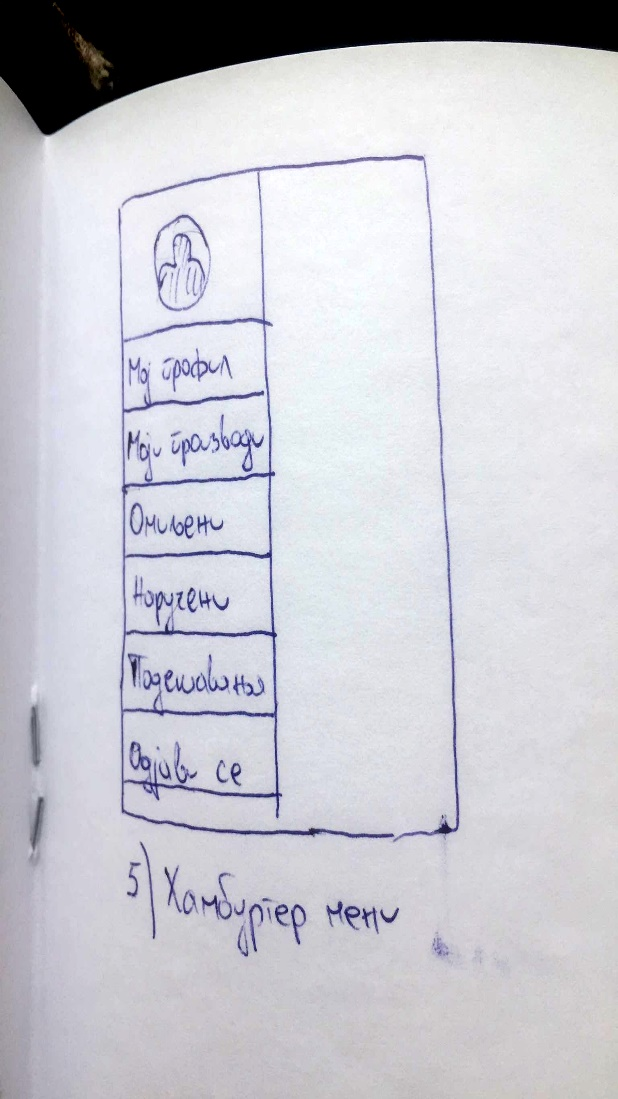 Мој профил
Моји производи
Омиљени
Наручени
Подешавања
Одјави се
5) Хамбургер мени